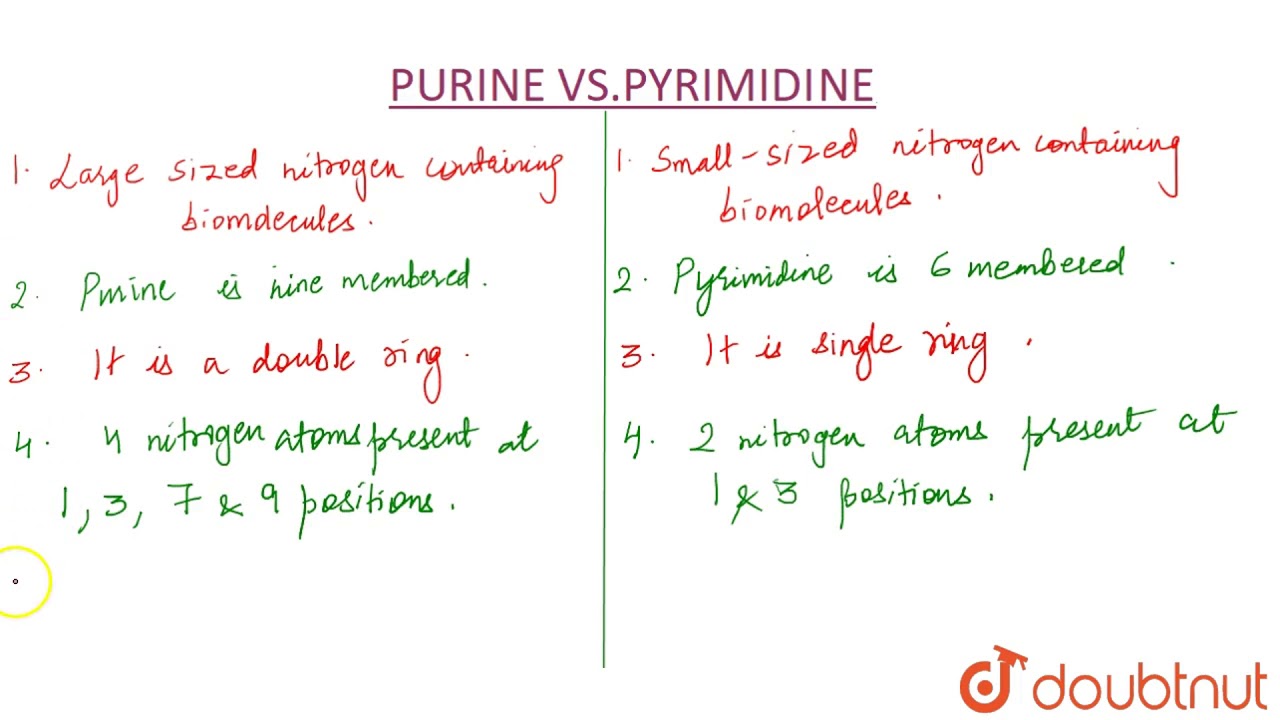 PURINE VS.PYRIMIDINE
1. Large sized nitrogen containing
biomolecules.
2. Purine is nine membered.
3. It is a double ring.
4. 4 nitrogen atoms present at
1, 3, 7 & 9 positions.
1. Small-sized nitrogen containing
biomolecules.
2. Pyrimidine is 6 membered.
3. It is single ring.
4. 2 nitrogen atoms present at
1 & 3 positions.
doubtnut